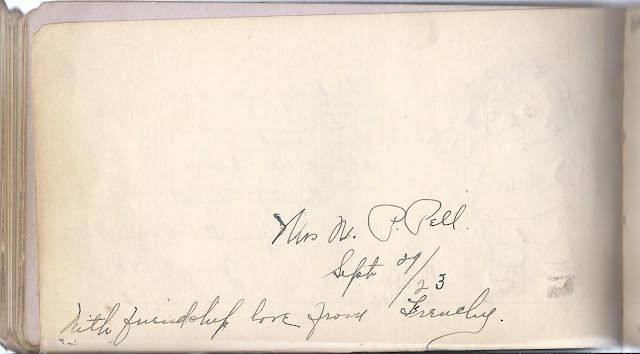 Mrs W. P. Pell.
Sept 29/23
With friendship love from Frenchy.